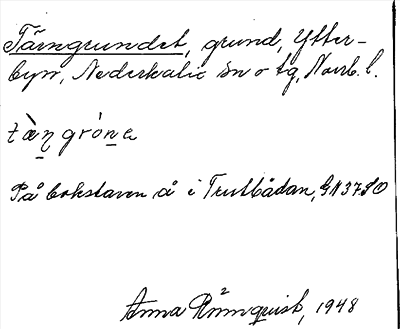 Tärngrundet, grund, Ytter-
byn, Nederkalix sn o tg, Norrb. l.
tä̀ŋgrón̲a
På bokstaven å i Trutbådan, GK 37
Anna Rönnquist, 1948